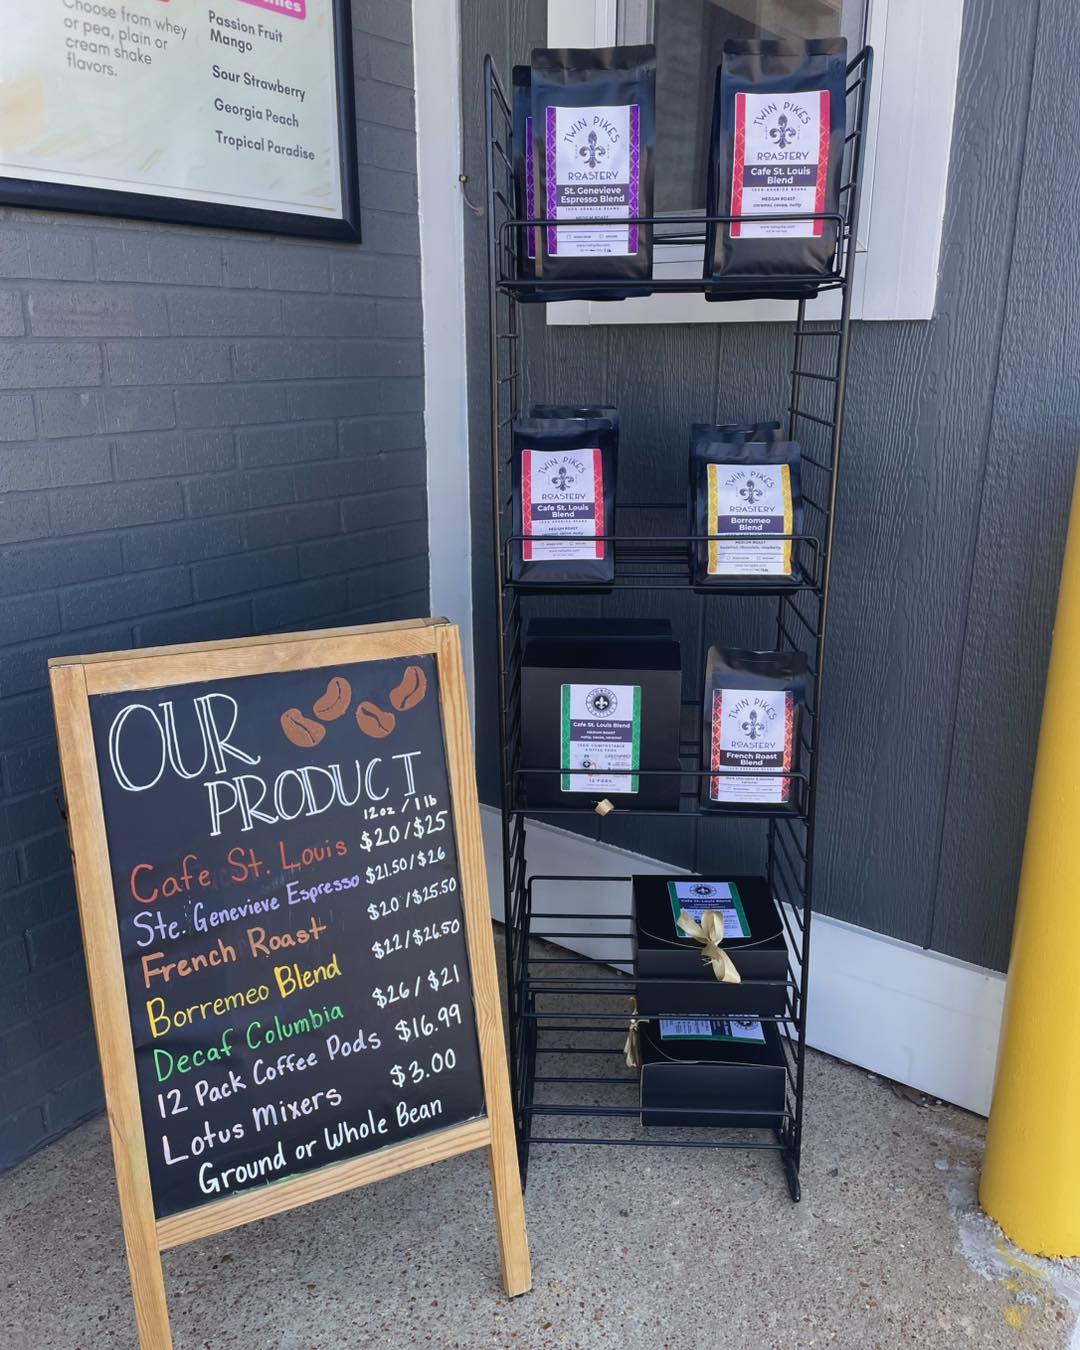 Choose from whey
or pea, plain or
cream shake
flavors.
Passion Fruit
Mango
Sour Strawberry
Georgia Peach
Tropical Paradise
TWIN PIKES
ROASTERY
St. Genevieve
Espresso Blend
100% ARABICA BEANS
MEDIUM ROAST
TWIN PIKES
ROASTERY
Cafe St. Louis
Blend
100% ARABICA BEANS
MEDIUM ROAST
caramel, cocoa, nutty
TWIN PIKES
ROASTERY
Cafe St. Louis
Blend
100% ARABICA BEANS
MEDIUM ROAST
TWIN PIKES
ROASTERY
Borromeo
Blend
MEDIUM ROAST
hazelnut, chocolate, raspberry
Cafe St. Louis Blend
MEDIUM ROAST
nutty, cocoa, caramel
100% COMPOSTABLE
COFFEE PODS
12 PODS
TWIN PIKES
ROASTERY
French Roast
Blend
100% ARABICA BEANS
Cafe St. Louis Blend
OUR
PRODUCT
12oz / 1 lb
Cafe St. Louis $20/$25
Ste. Genevieve Espresso $21.50/$26
French Roast $20/$25.50
Borremeo Blend $22/$26.50
Decaf Columbia $26/$21
12 Pack Coffee Pods $16.99
Lotus Mixers $3.00
Ground or Whole Bean